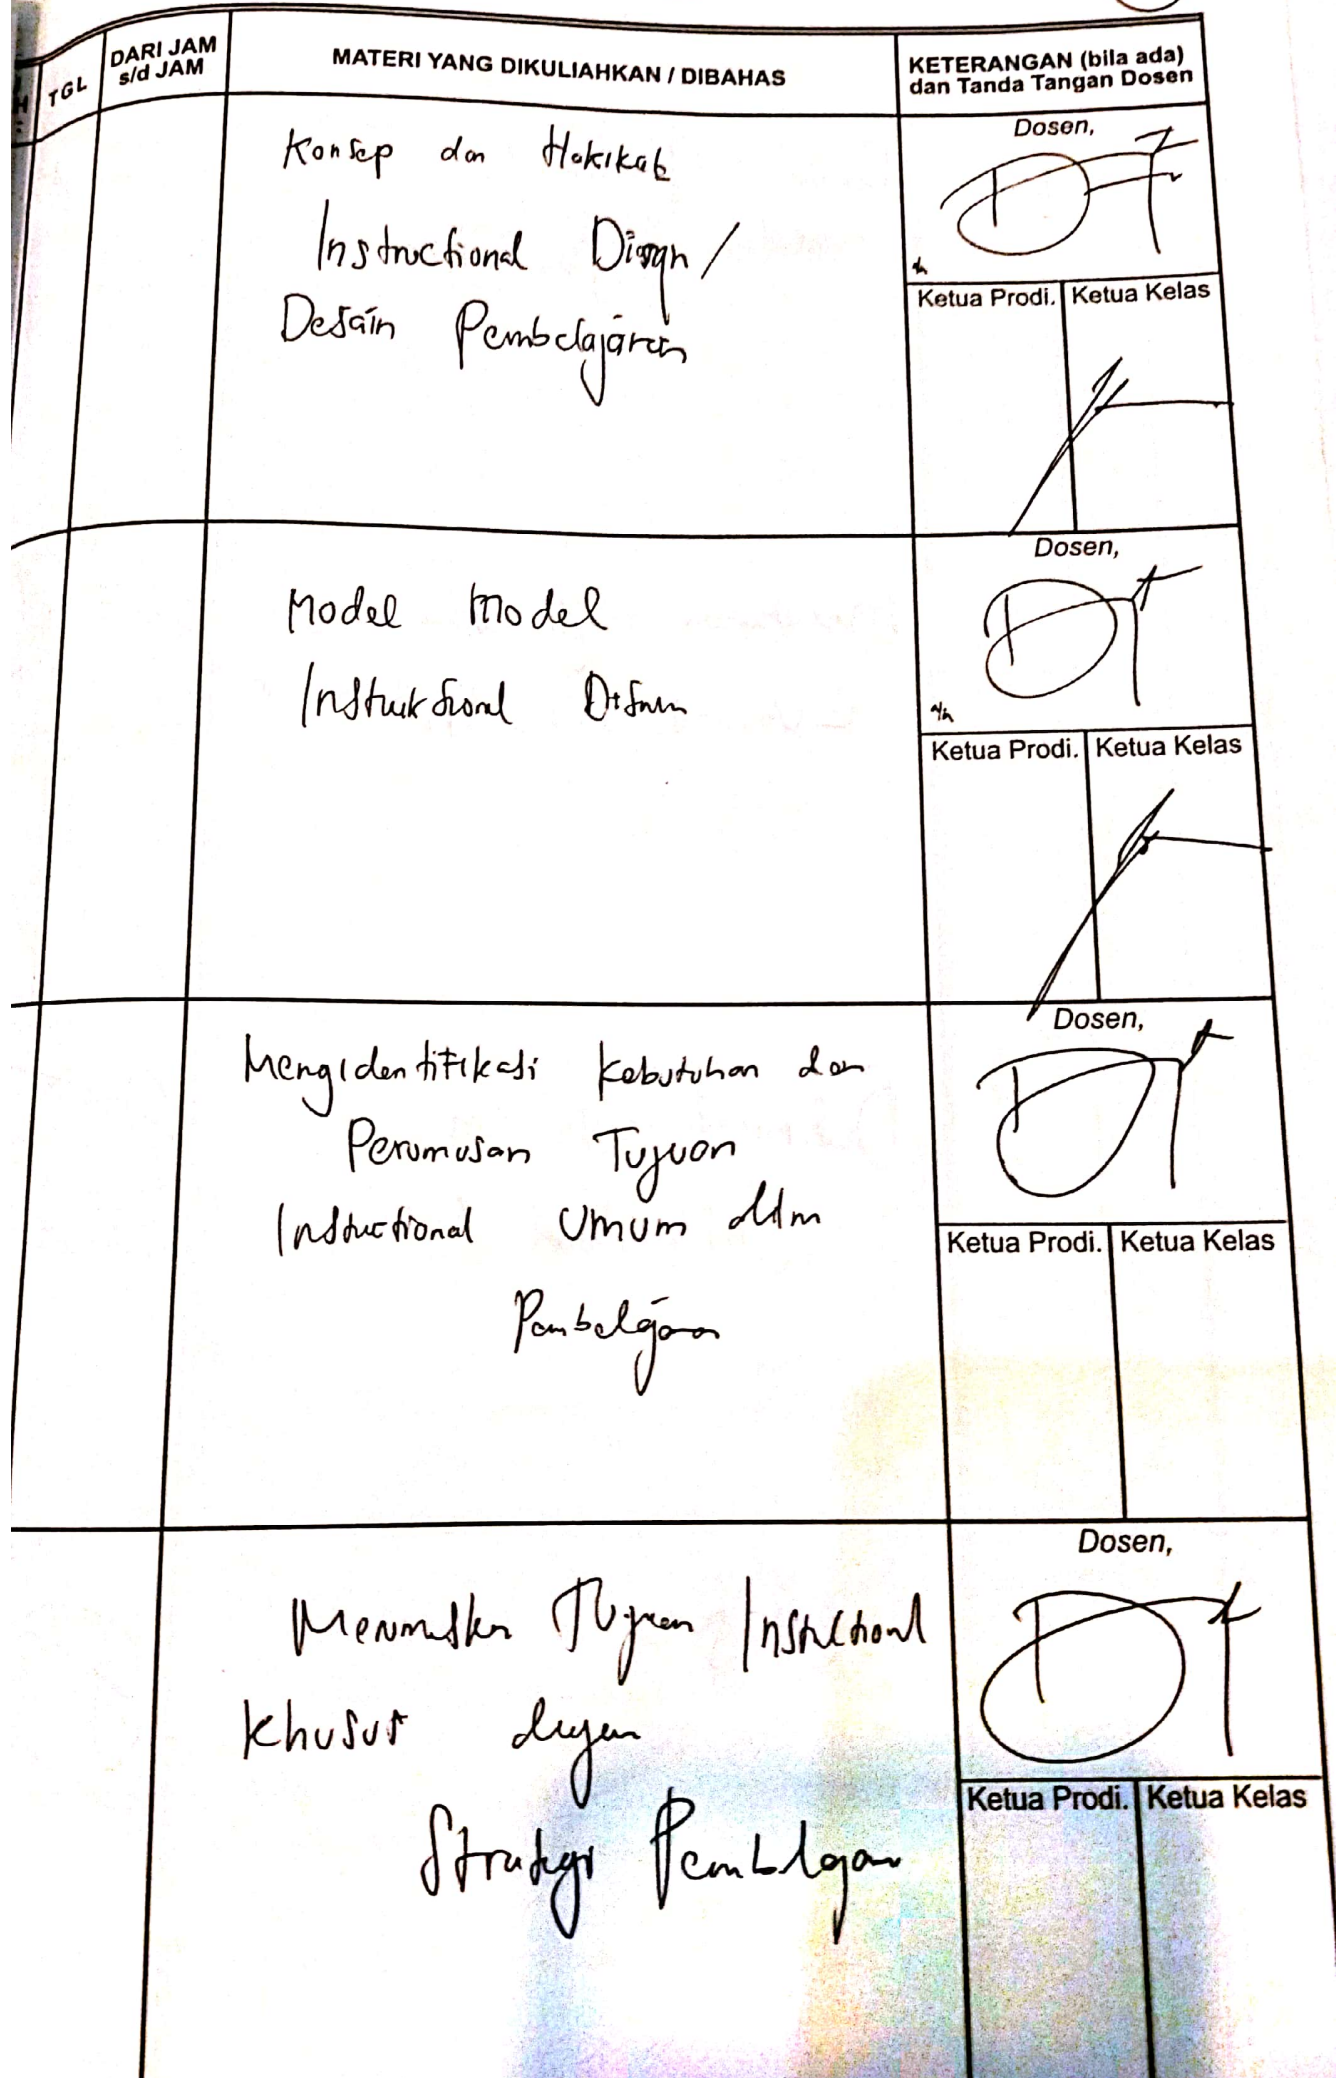 TGL
DARI JAM
s/d JAM
MATERI YANG DIKULIAHKAN / DIBAHAS
KETERANGAN (bila ada)
dan Tanda Tangan Dosen
Konsep dan Hakikat
Instructional Disign /
Desain Pembelajaran
Dosen,
Ketua Prodi. Ketua Kelas
Model Model
Instruktional
Dosen,
a/n
Ketua Prodi. Ketua Kelas
Mengidentifikasi Kebutuhan dan
Perumusan Tujuan
Instructional Umum dlm
Pembelajaran
Dosen,
Ketua Prodi. Ketua Kelas
Merumuskan Tujuan Instructional
Khusus dengan
Strategi Pembelajaran
Dosen,
Ketua Prodi. Ketua Kelas